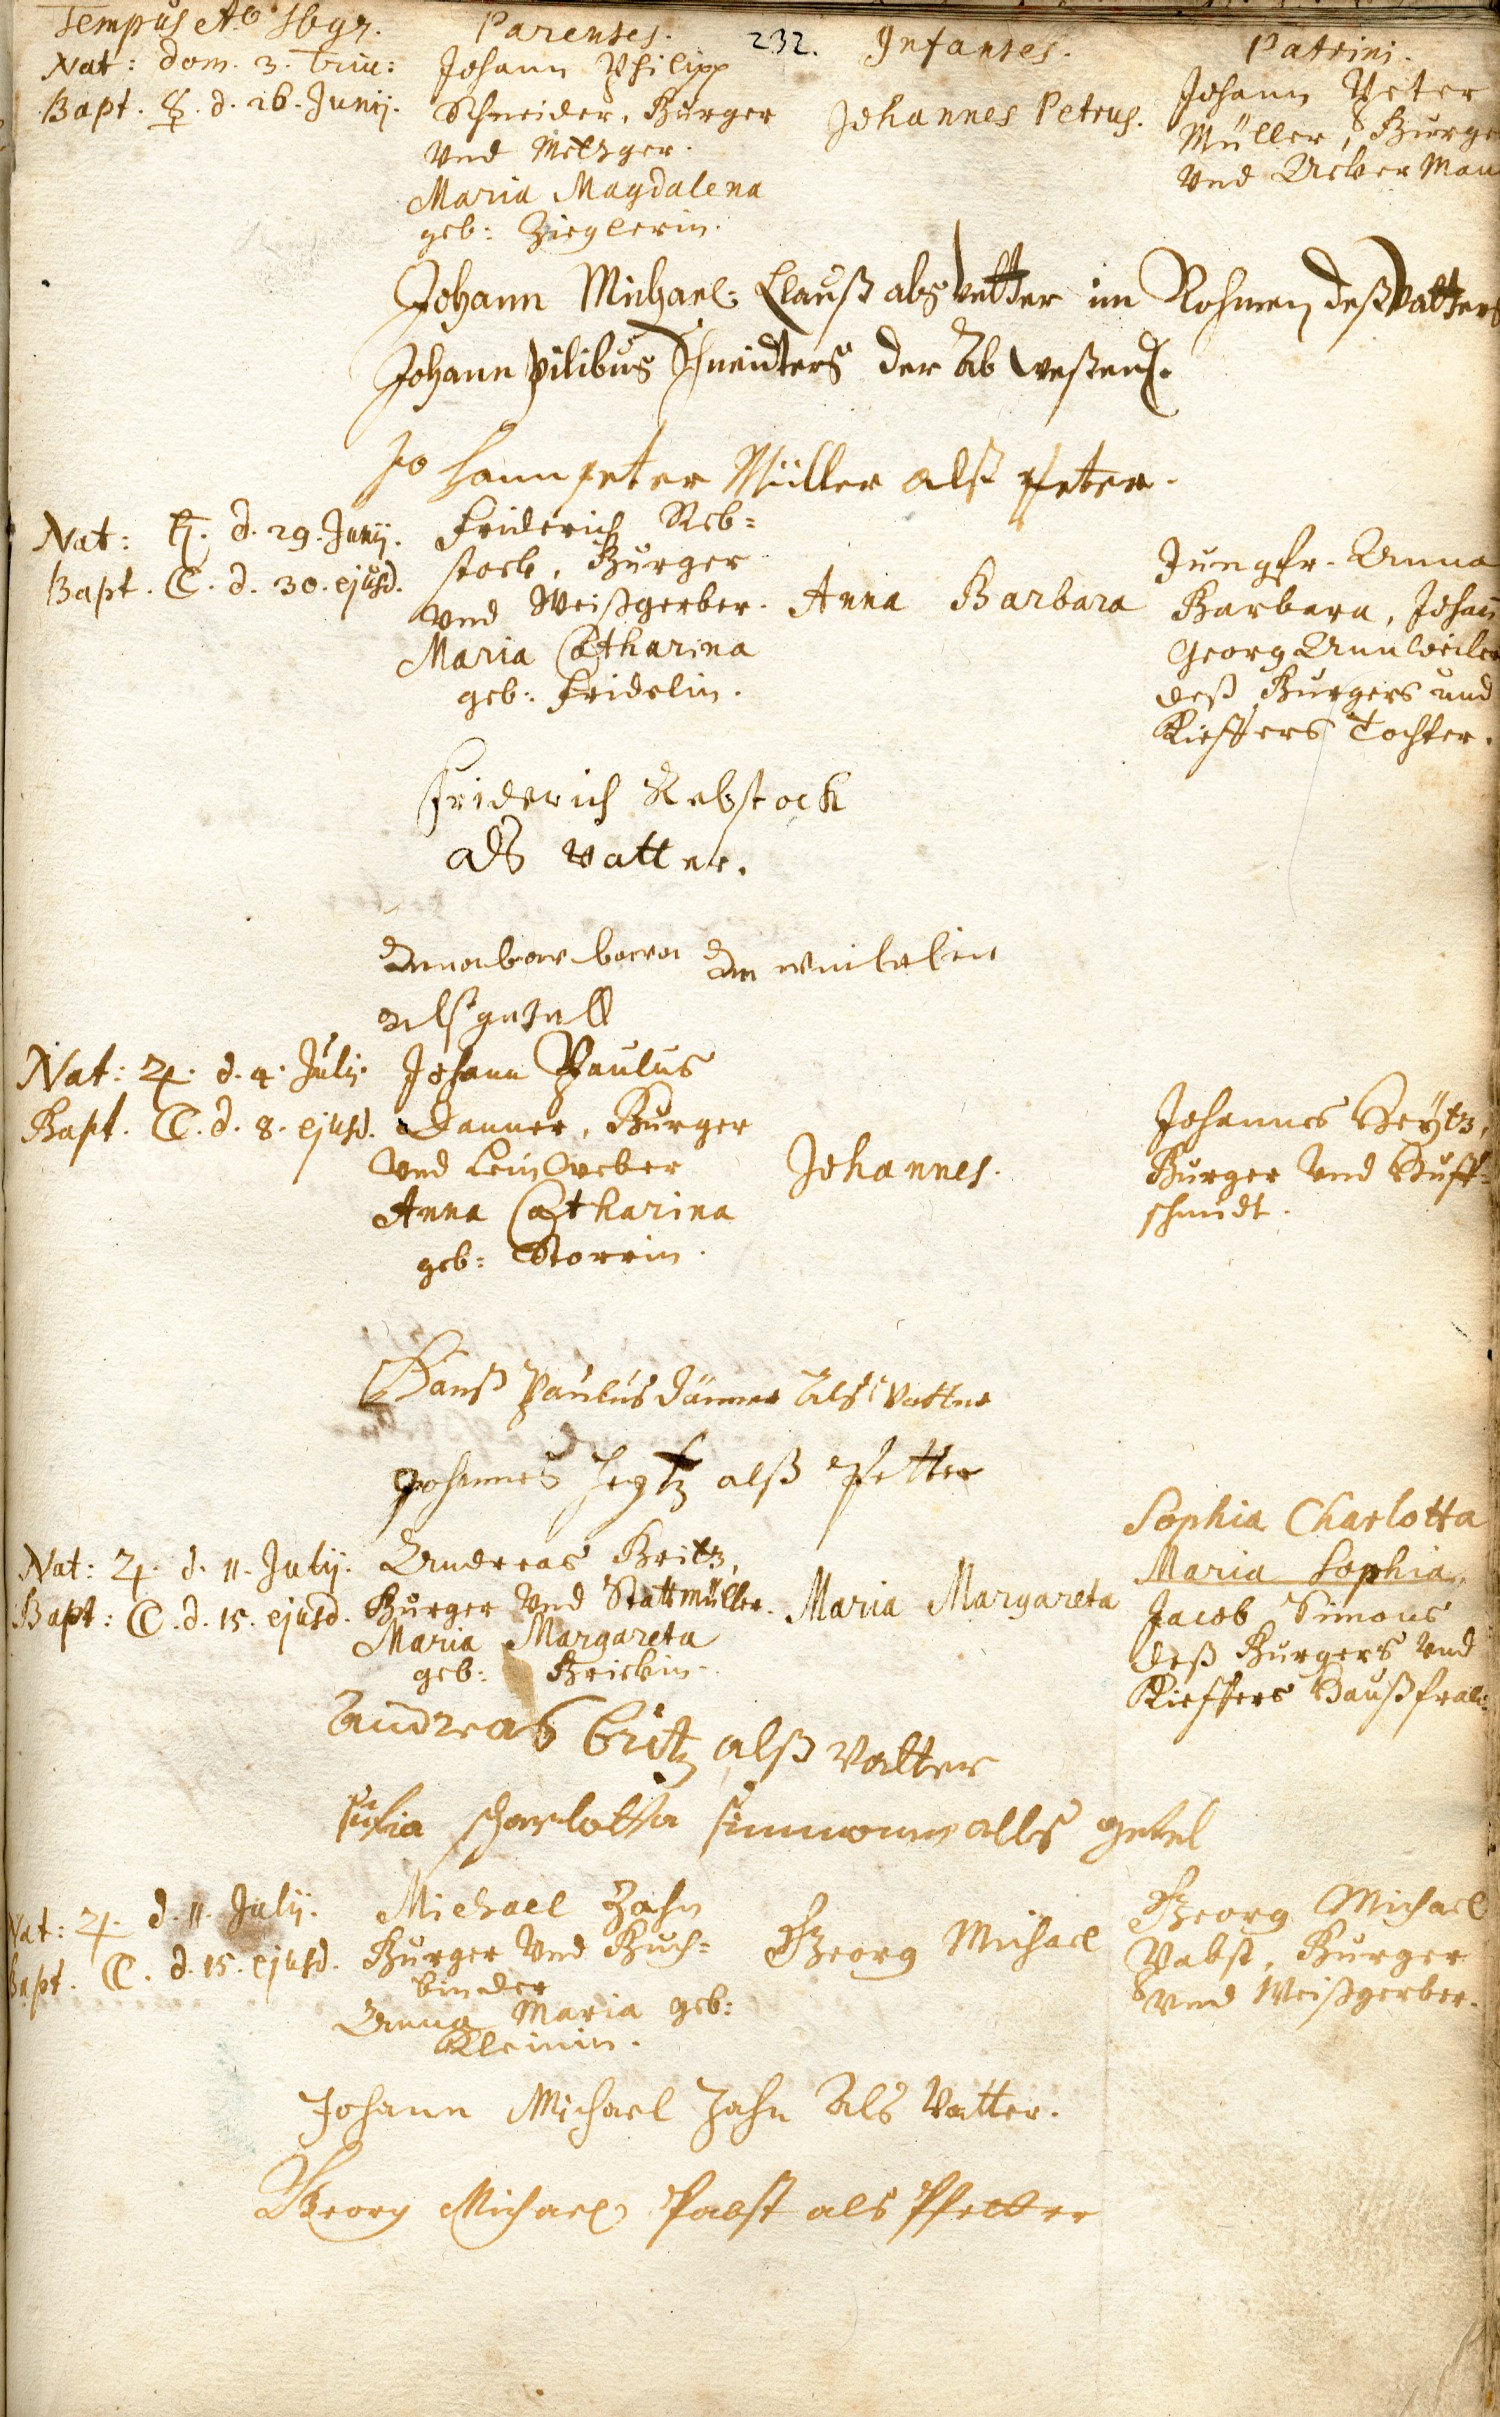 Tempus Aº. 1697. Parentes. 232. Infantes. Patrini.
Nat: dom. 3. Trin:
Bapt. ☿. d. 26. Junij.
Johann Philipp
Schneider, Burger
Vnd Metzger.
Maria Magdalena
geb: Zieglerin.
Johannes Petrus.
Johann Peter
Müller, Burge
Vnd Acker Man
Johann Michael Clauß als vetter im Nohmen deß Vatters
Johann Pilibus Schneiders der Ab weßend.
Johann peter Müller alß Peter.
Nat: ♄. d. 29. Junij.
Bapt. ☾. d. 30. ejusd.
Friderich Reb=
stock, Burger
Vnd Weißgerber.
Maria Catharina
geb: Fridelin.
Anna Barbara
Jungfr. Anna
Barbara, Johan̄
Georg Annweiler
deß Burgers und
Kieffers Tochter.
Friderich Rebstock
als vatter.
Anna barbara An weilerin
alß getell
Nat: ♃. d. 4. Julij.
Bapt. ☾. d. 8. ejusd.
Johann Paulus
Danner, Burger
Vnd Leinweber
Anna Catharina
geb: Storrin.
Johannes.
Johannes Heÿtz,
Burger Vnd Huff=
schmidt.
Hanß Paulus Danner Alß Vatter
Johannes Heytz alß Petter
Nat: ♃. d. 11. Julij.
Bapt: ☾. d. 15. ejusd.
Andreas Britz,
Burger Vnd Stattmüller.
Maria Margareta
geb: Brickin.
Maria Margareta
Sophia Charlotta
Maria Sophia,
Jacob Simons
deß Burgers Vnd
Kieffers Haußfrau.
Andreas Britz alß Vatter
sufia scharlotta simmonin alls getel
Nat: ♃. d. 11. Julij.
Bapt. ☾. d. 15. ejusd.
Michael Zahn
Burger Vnd Buch=
binder
Anna Maria geb:
Kleinin.
Georg Michael
Georg Michael
Pabst, Burger
Vnd Weißgerber.
Johann Michael Zahn Als Vatter.
Georg Michael Pabst als Pfetter